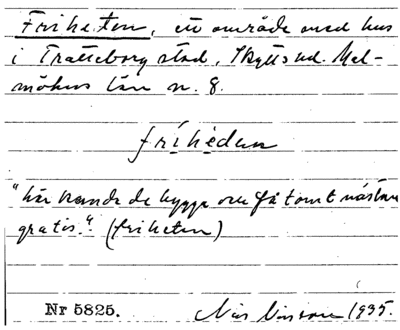 Friheten, ett område med hus
i Trälleborg stad, Skytts hd. Mal-
möhus län n. 8.
fríhèdan
"här kunde de bygga och få tomt nästan
gratis." (friheten)
Nr 5825.
Nils Nilsson 1935.